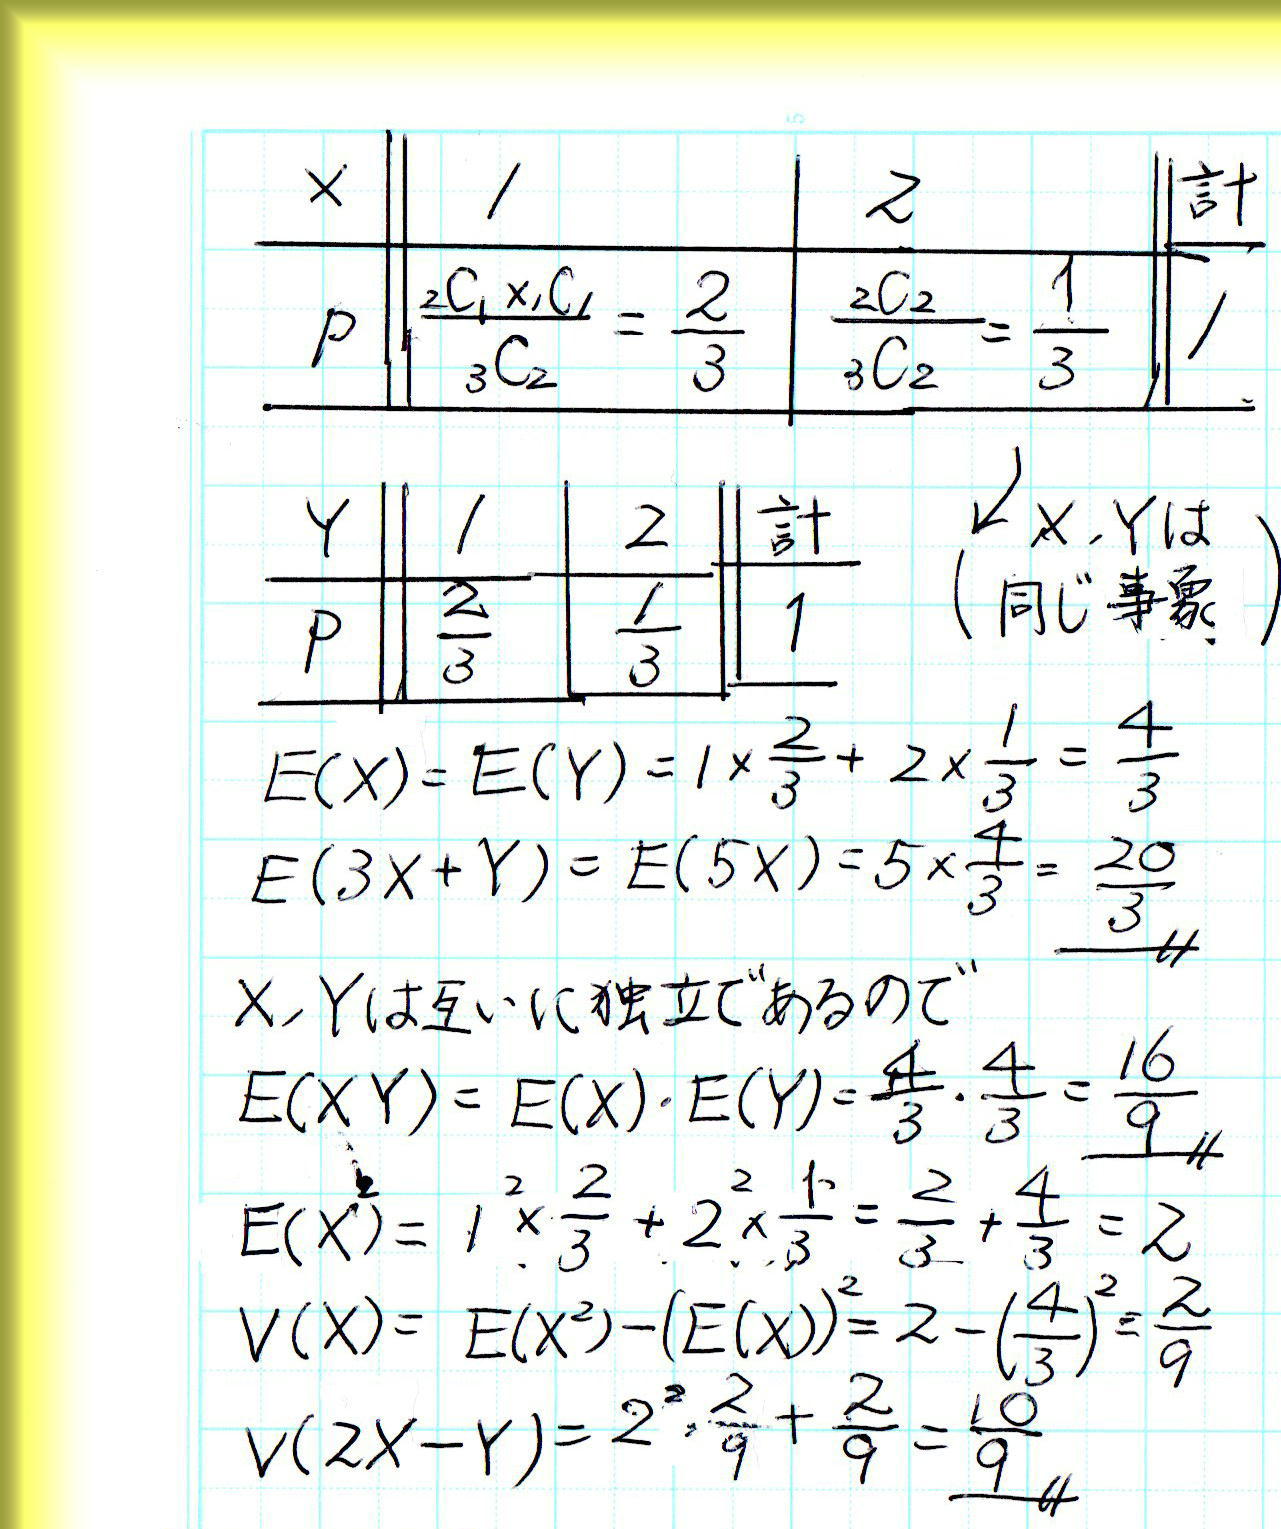 X 1 2 計
P ₂C₁×₁C₁/₃C₂ = 2/3 ₂C₂/₃C₂ = 1/3 1
Y 1 2 計
P 2/3 1/3 1
(X,Yは
同じ事象)
E(X)=E(Y)=1×2/3+2×1/3=4/3
E(3X+Y)=E(5X)=5×4/3=20/3
X,Yは互いに独立であるので
E(XY)=E(X)·E(Y)=4/3·4/3=16/9
E(X²)=1²×2/3+2²×1/3=2/3+4/3=2
V(X)=E(X²)-(E(X))²=2-(4/3)²=2/9
V(2X-Y)=2²·2/9+2/9=10/9